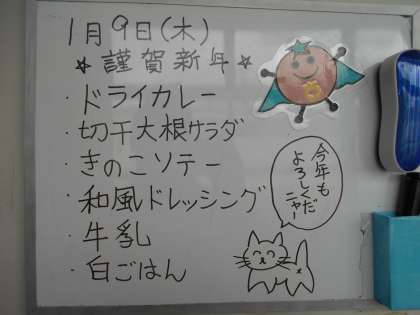 1月9日(木)
☆謹賀新年☆
・ドライカレー
・切干大根サラダ
・きのこソテー
・和風ドレッシング
・牛乳
・白ごはん
今年も
よろしくだ
ニャー